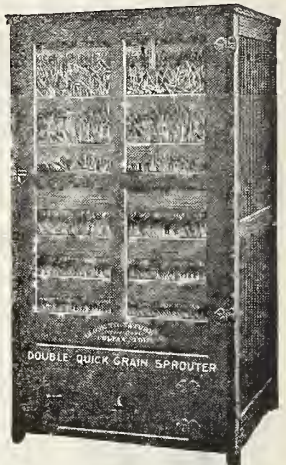 COLFAX, IOWA
DOUBLE QUICK GRAIN SPROUTER